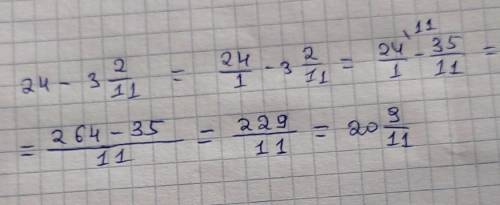 24 - 3 2/11 = 24/1 - 3 2/11 = 24\11/1 - 35/11 =
= 264 - 35/11 = 229/11 = 20 9/11